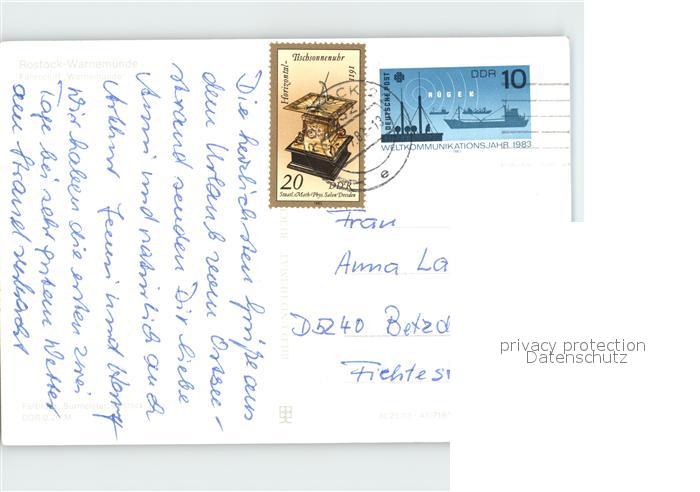 Rostock-Warnemünde
Fährschiff "Warnemünde"
Die herzlichsten Grüße aus
dem Urlaub vom Ostsee-
strand senden Dir liebe
Anni und natürlich auch
Arthur Jenni und Horst
Wir haben die ersten zwei
Tage bei sehr gutem Wetter
am Strand verbracht
DDR
Horizontal-Tischsonnenuhr
1611
20 DDR
Staatl. Math./Phys. Salon Dresden
DEUTSCHE POST
DDR 10
RÜGEN
WELTKOMMUNIKATIONSJAHR 1983
e
Frau
Anna La
D5240 Betzd
Fichtes
privacy protection
Datenschutz